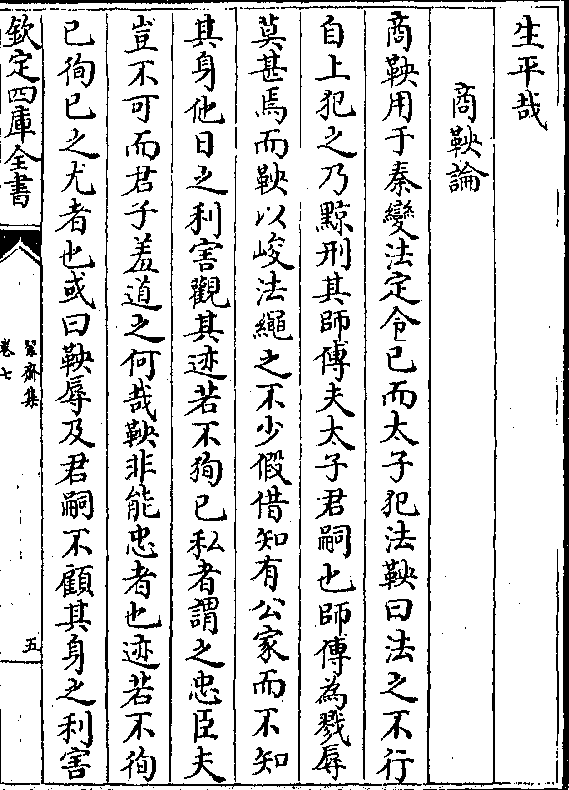 生平哉
商鞅論
商鞅用于秦變法定令已而太子犯法鞅曰法之不行
自上犯之乃黥刑其師傅夫太子君嗣也師傅為戮辱
莫甚焉而鞅以峻法繩之不少假借知有公家而不知
其身他日之利害觀其迹若不狥已私者謂之忠臣夫
豈不可而君子羞道之何哉鞅非能忠者也迹若不徇
已徇已之尤者也或曰鞅辱及君嗣不顧其身之利害
欽定四庫全書
卷七
五